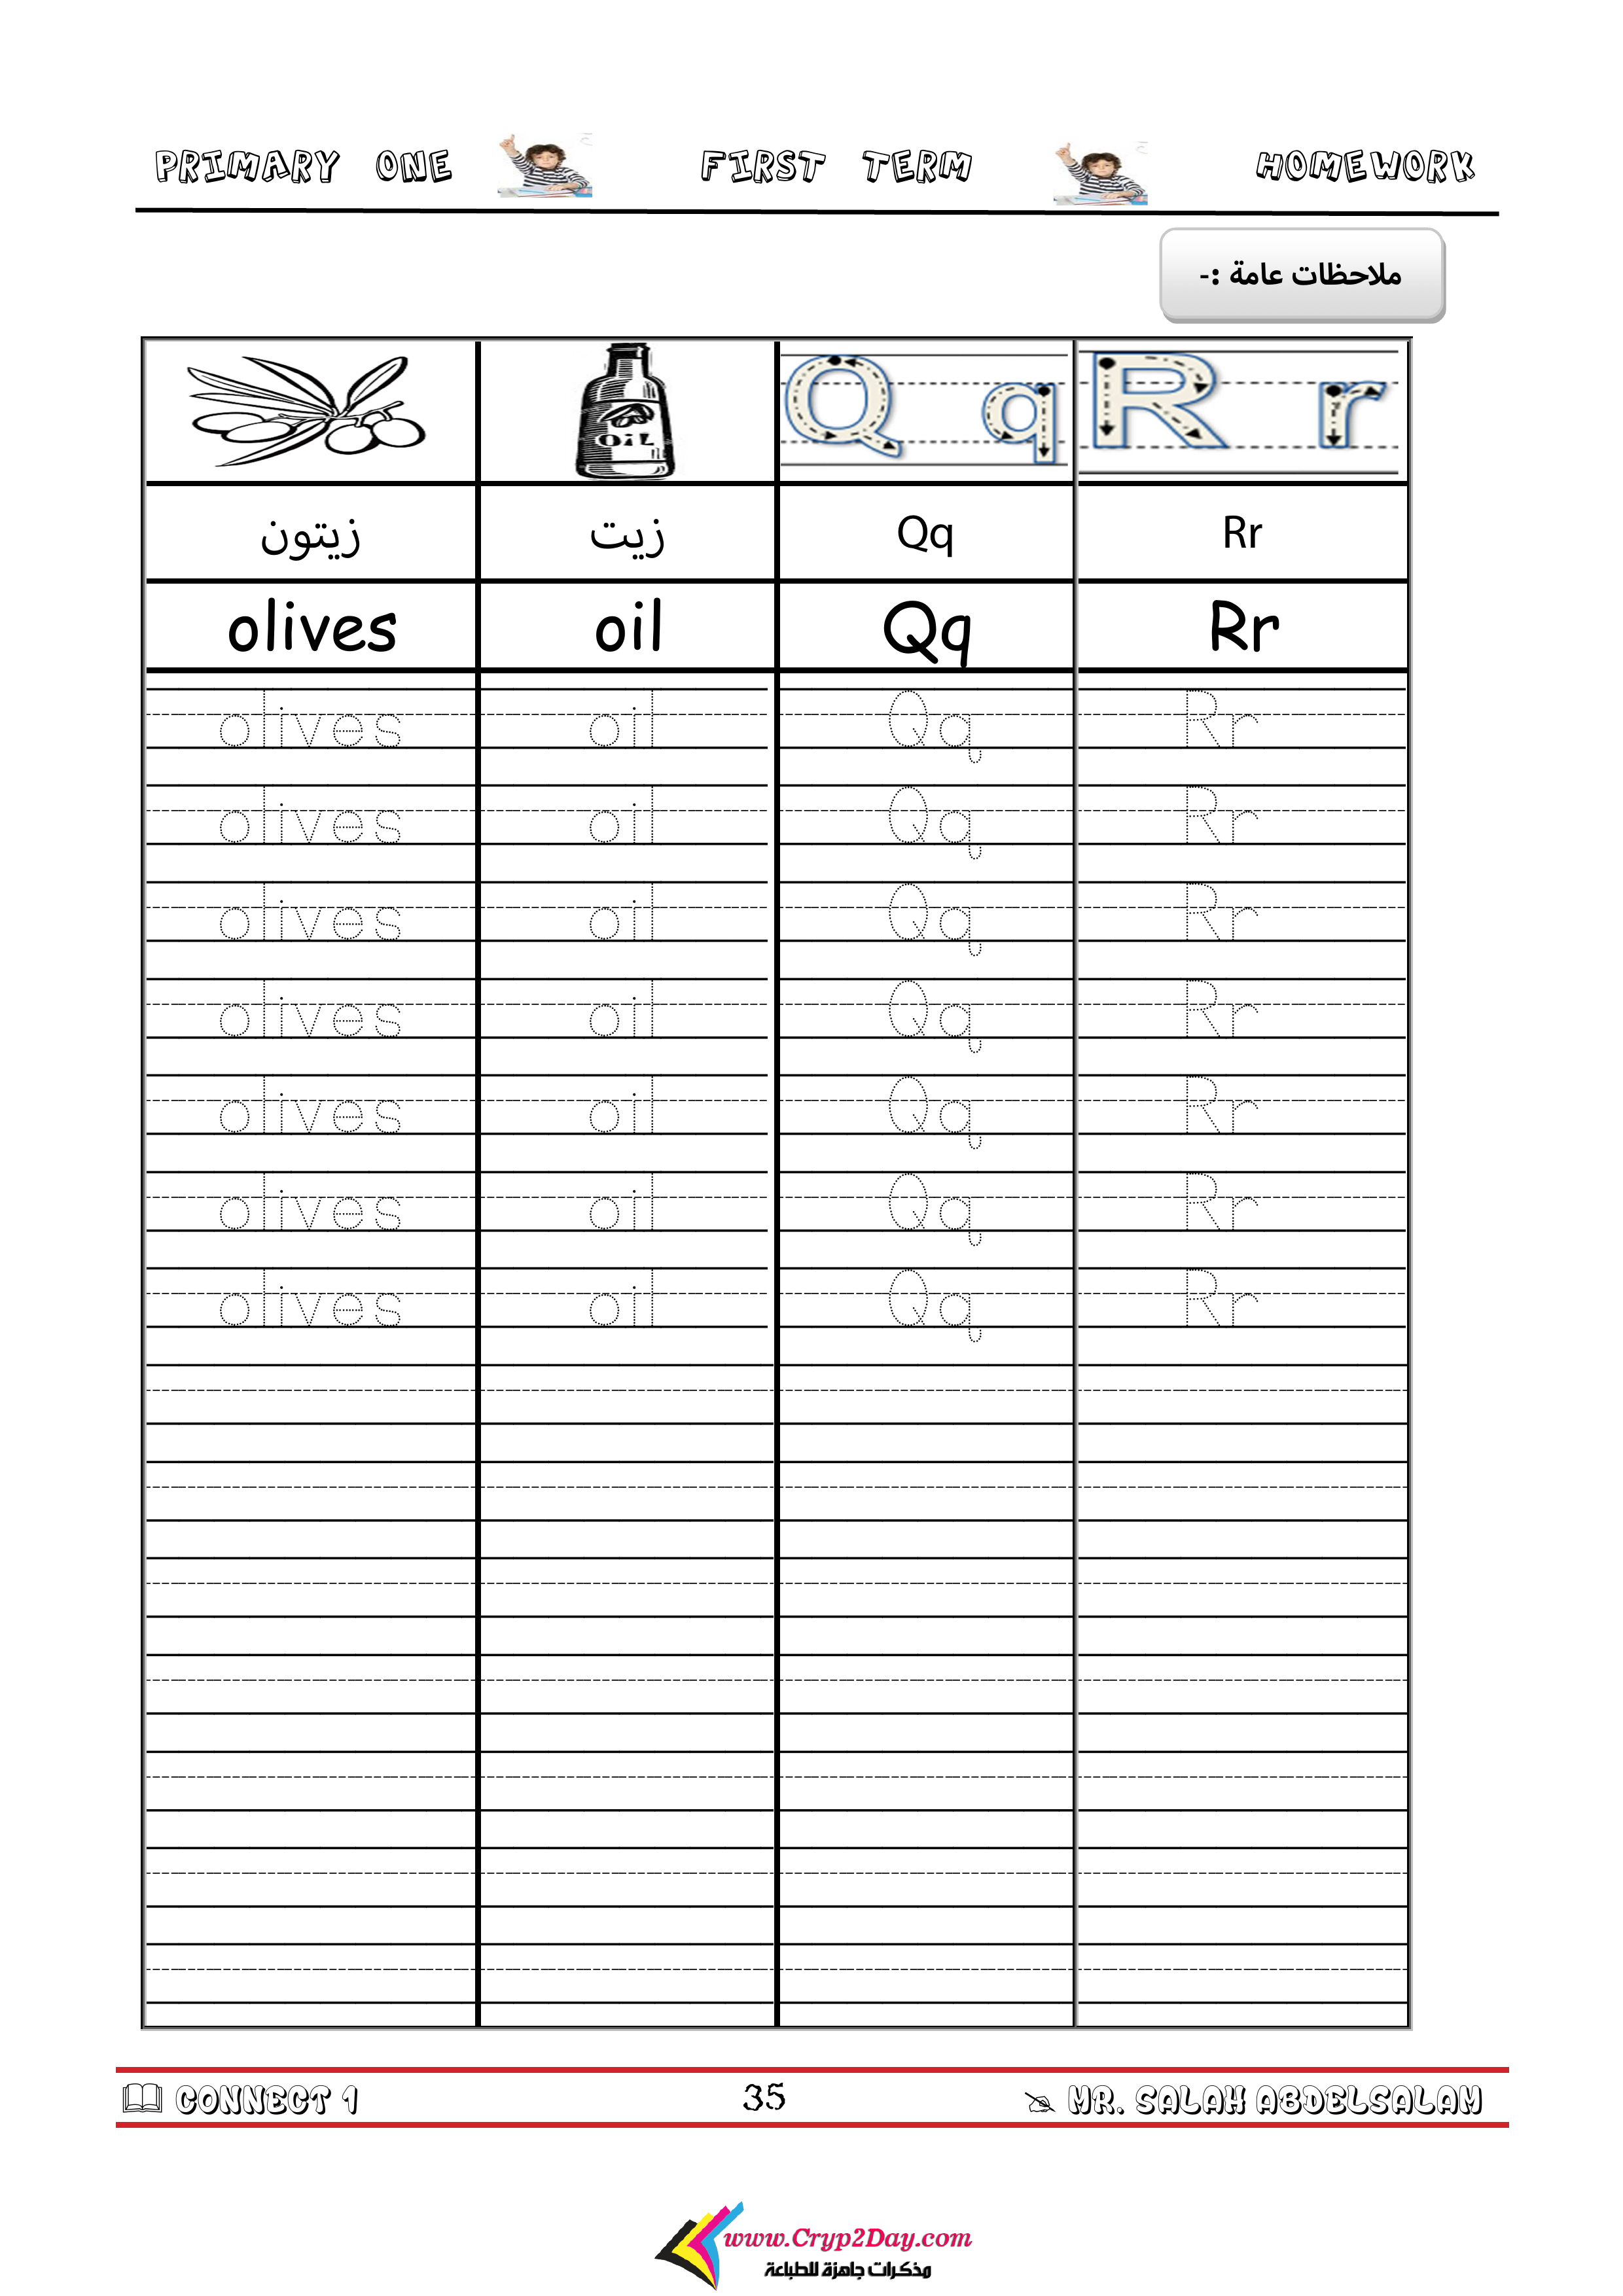 PRIMARY ONE FIRST TERM HOMEWORK
ملاحظات عامة :-
OIL Q q R r
زيتون زيت Qq Rr
olives oil Qq Rr
olives oil Qq Rr
olives oil Qq Rr
olives oil Qq Rr
olives oil Qq Rr
olives oil Qq Rr
olives oil Qq Rr
olives oil Qq Rr
CONNECT 1 35 MR. SALAH ABDELSALAM
www.Cryp2Day.com
مذكرات جاهزة للطباعة